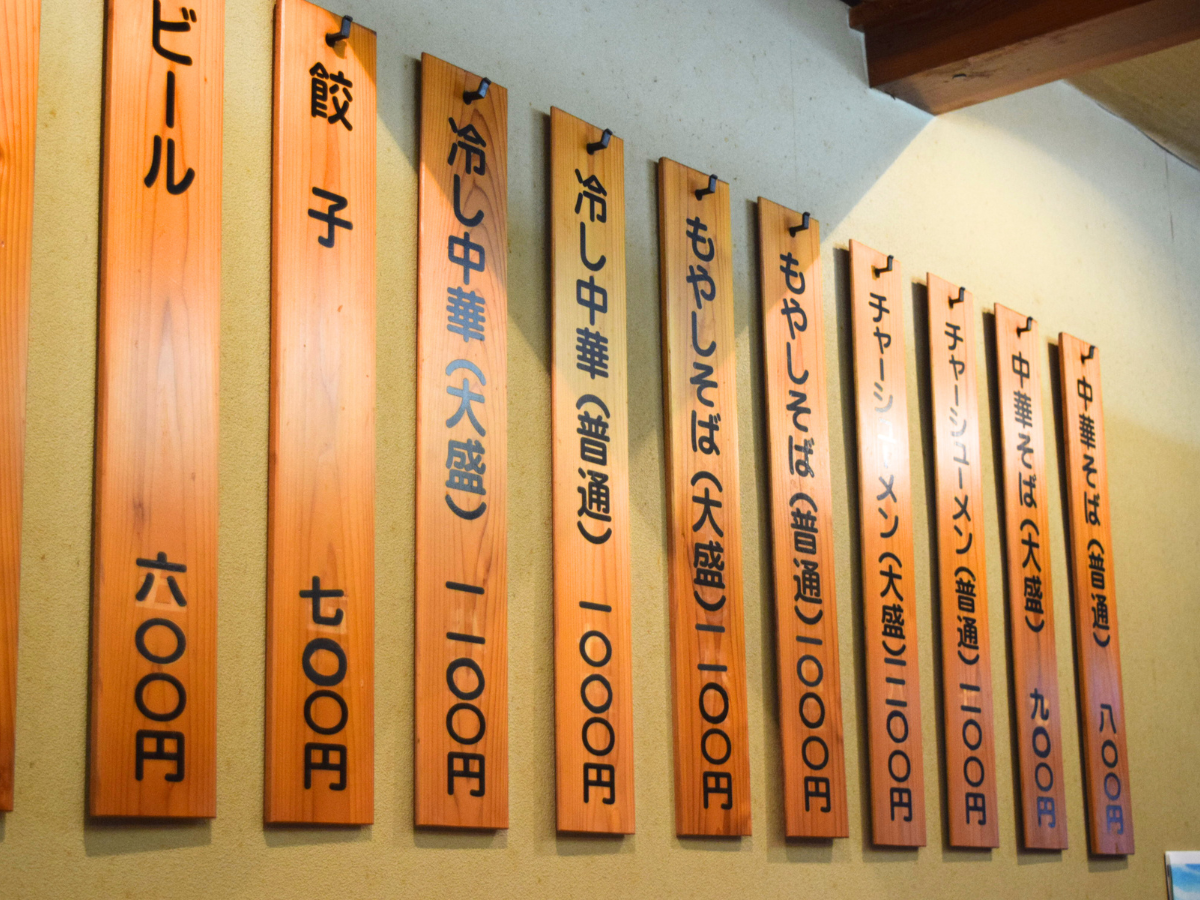 中華そば（普通） 八〇〇円
中華そば（大盛） 九〇〇円
チャーシューメン（普通）一一〇〇円
チャーシューメン（大盛）一二〇〇円
もやしそば（普通）一〇〇〇円
もやしそば（大盛）一一〇〇円
冷し中華（普通） 一〇〇〇円
冷し中華（大盛） 一一〇〇円
餃子 七〇〇円
ビール 六〇〇円